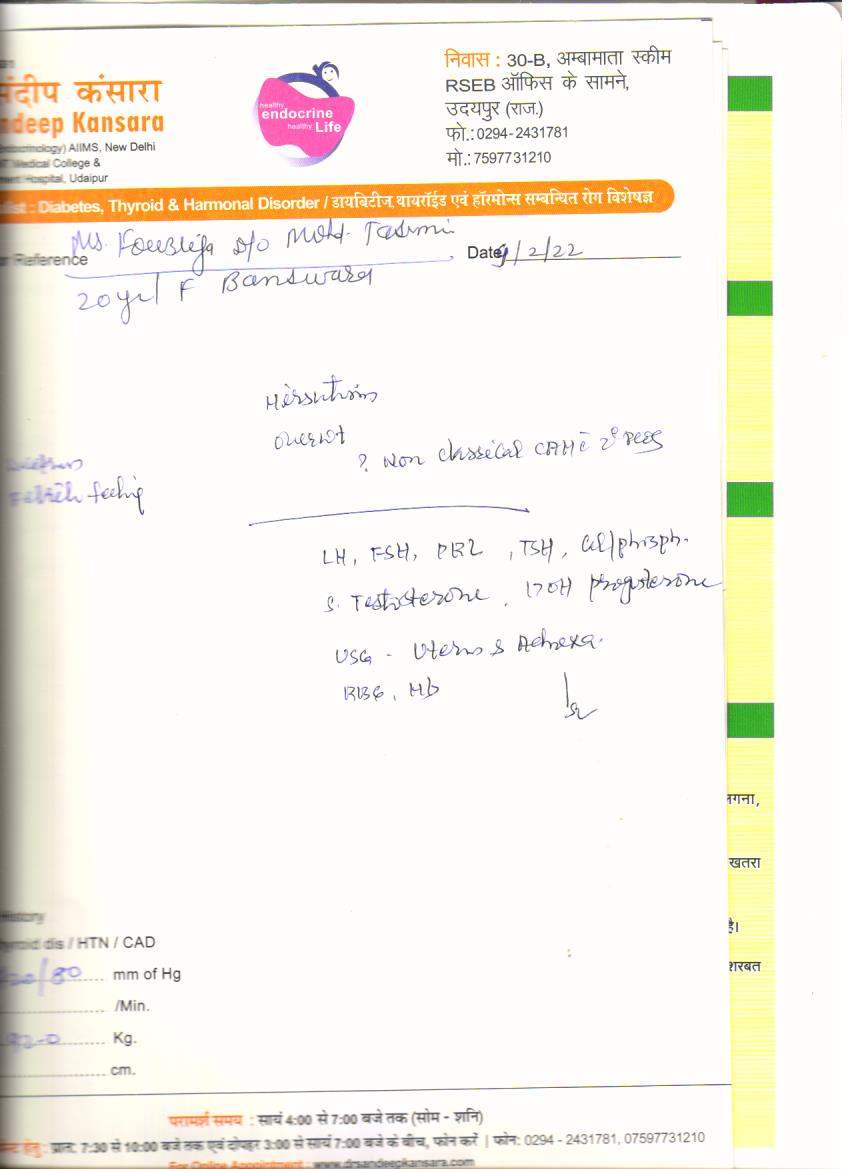 संदीप कंसारा
ndeep Kansara
AIIMS, New Delhi
Medical College &
Hospital, Udaipur
healthy
endocrine
healthy Life
निवास : 30-B, अम्बामाता स्कीम
RSEB ऑफिस के सामने,
उदयपुर (राज.)
फो.: 0294-2431781
मो.: 7597731210
list : Diabetes, Thyroid & Harmonal Disorder / डायबिटीज, थायरॉईड एवं हॉरमोन्स सम्बन्धित रोग विशेषज्ञ
Reference Ms. D/o Mohd.
Date 9/2/22
20yr/F Banswara
Hirsutism
overwt
? Non classical CAH
feeling
LH, FSH, PRL, TSH, Cal/phosph.
S. Testosterone, 17OH progesterone
USG - Uterus & Adnexa.
RBG, Hb
लगना,
खतरा
है।
शरबत
History
thyroid dis / HTN / CAD
/80 mm of Hg
/Min.
Kg.
cm.
परामर्श समय : सायं 4:00 से 7:00 बजे तक (सोम - शनि)
हेतु : प्रातः 7:30 से 10:00 बजे तक एवं दोपहर 3:00 से सायं 7:00 बजे के बीच, फोन करें | फोन: 0294 - 2431781, 07597731210
For Online Appointment : www.drsandeepkansara.com